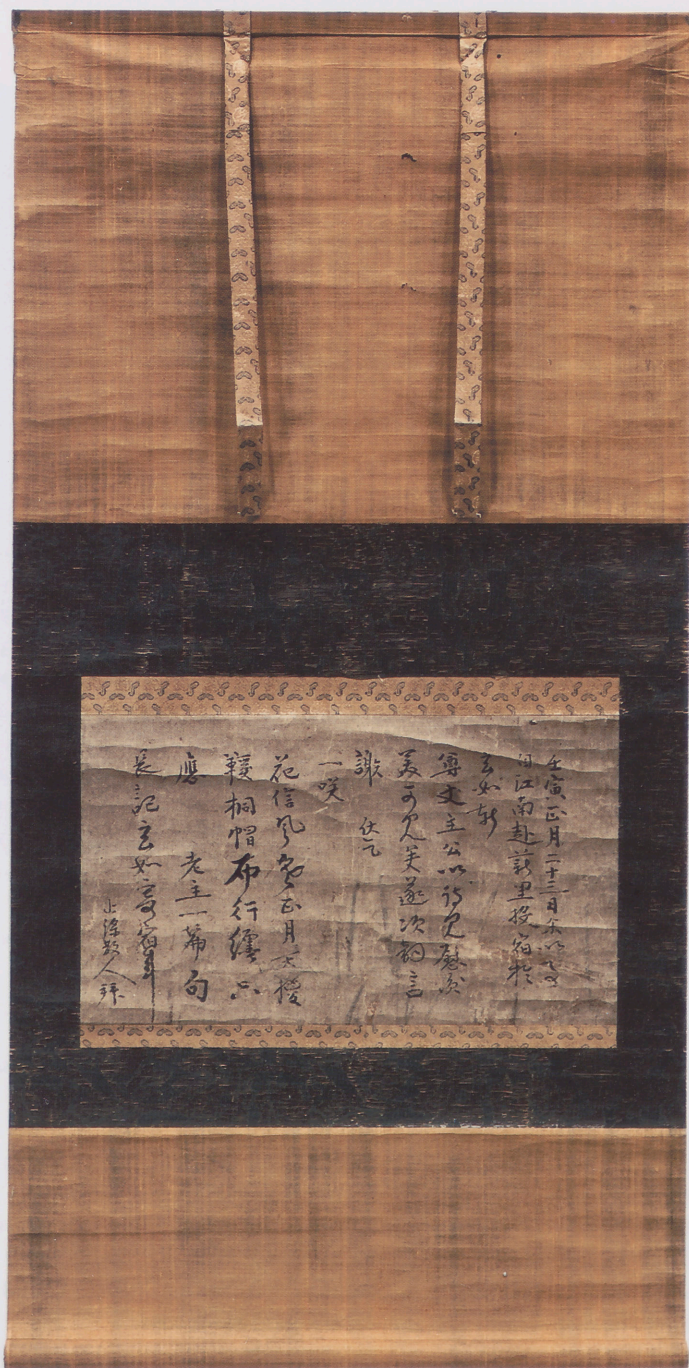 壬寅正月二十三日余以
自江南赴新里投宿於
玄如軒
尊丈主公以詩見慰
美可見矣遂次韵言
謝 伏乞
一咲
花信風 正月天
鞋桐帽布行纏只
應 老主一篇句
長記玄如寄宿年
人拜